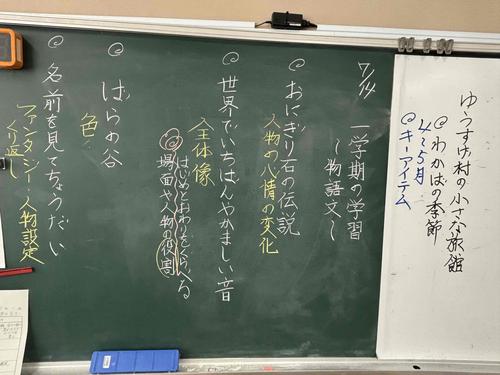 ゆうすげ村の小さな旅館
◎わかばの季節
4~5月
◎キーアイテム
7/14
一学期の学習
~物語文~
◎おにぎり石の伝説
人物の心情の変化
◎世界でいちばんやかましい音
全体像
◎はじめとおわりをくらべる
場面や人物の役割
◎ばらの谷
色
◎名前を見てちょうだい
ファンタジー・人物設定
くり返し